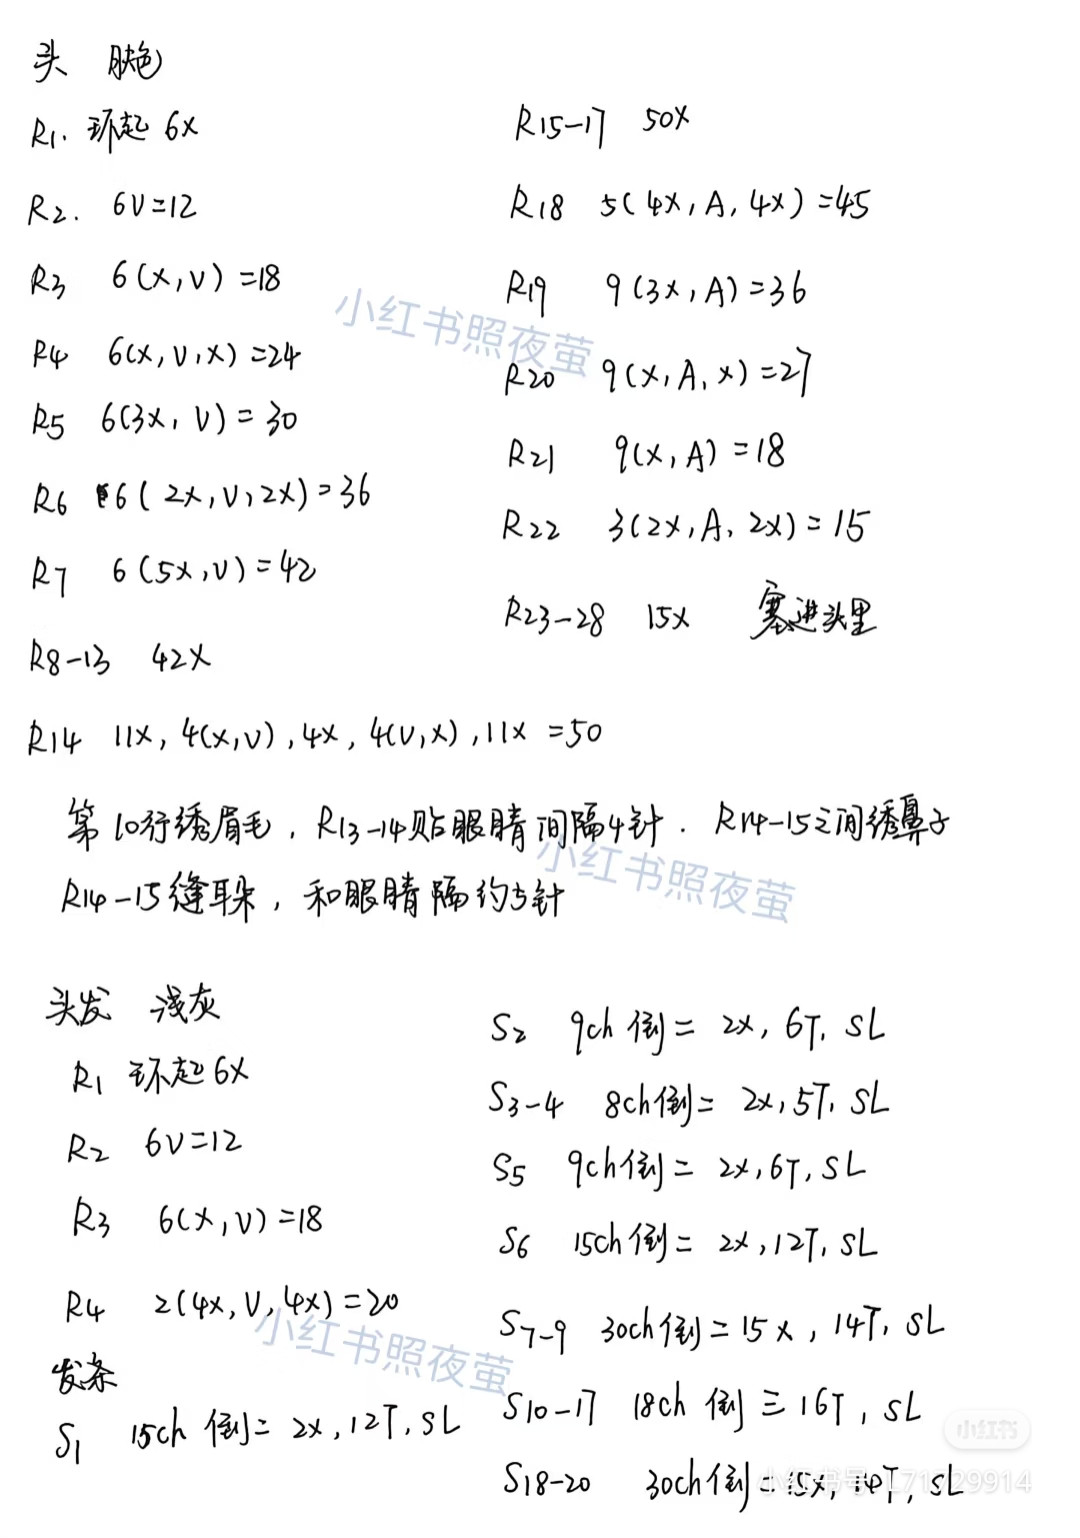 头 肤色
R1. 环起 6X
R2. 6V=12
R3 6(X,V)=18
R4 6(X,V,X)=24
R5 6(3X,V)=30
R6 6(2X,V,2X)=36
R7 6(5X,V)=42
R8-13 42X
R14 11X,4(X,V),4X,4(V,X),11X=50
R15-17 50X
R18 5(4X,A,4X)=45
R19 9(3X,A)=36
R20 9(X,A,X)=27
R21 9(X,A)=18
R22 3(2X,A,2X)=15
R23-28 15X 塞进头里
小红书照夜萤
第10行绣眉毛,R13-14贴眼睛间隔4针.R14-15之间绣鼻子
R14-15缝耳朵,和眼睛隔约5针
小红书照夜萤
头发 浅灰
R1 环起6X
R2 6V=12
R3 6(X,V)=18
R4 2(4X,V,4X)=20
发条
S1 15ch 倒二 2X,12T,SL
S2 9ch 倒二 2X,6T,SL
S3-4 8ch倒二 2X,5T,SL
S5 9ch倒二 2X,6T,SL
S6 15ch倒二 2X,12T,SL
S7-9 30ch倒二15X,14T,SL
S10-17 18ch 倒三16T,SL
S18-20 30ch倒二15X,14T,SL
小红书照夜萤
小红书